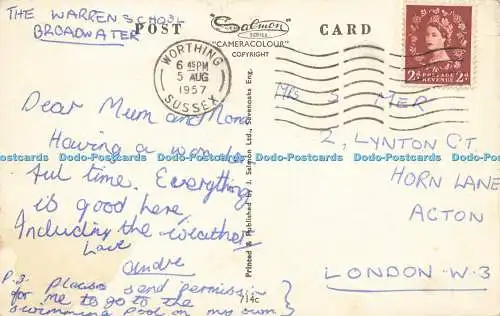 THE WARREN SCHOOL
BROADWATER
POST CARD
Salmon
SERIES
"CAMERACOLOUR"
COPYRIGHT
WORTHING
6 45 PM
5 AUG
1957
SUSSEX
2D POSTAGE 2D
REVENUE
Dear Mum and Nona
Having a wonder
ful time. Everything
is good here,
Including the weather
Love
Andre
P.S. please send permission
for me to go to the
swimming pool on my own
MRS S MER
2, LYNTON CT
HORN LANE
ACTON
LONDON W.3
Printed & Published by J. Salmon Ltd., Sevenoaks, Eng.
714c
Dodo-Postcards Dodo-Postcards Dodo-Postcards Dodo-Postcards Dodo-Postcards